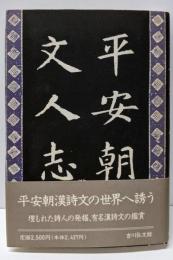 平安朝
文人志
平安朝漢詩文の世界へ誘う
埋もれた詩人の発掘、有名漢詩文の鑑賞
定価2,500円(本体2,427円)
吉川弘文館